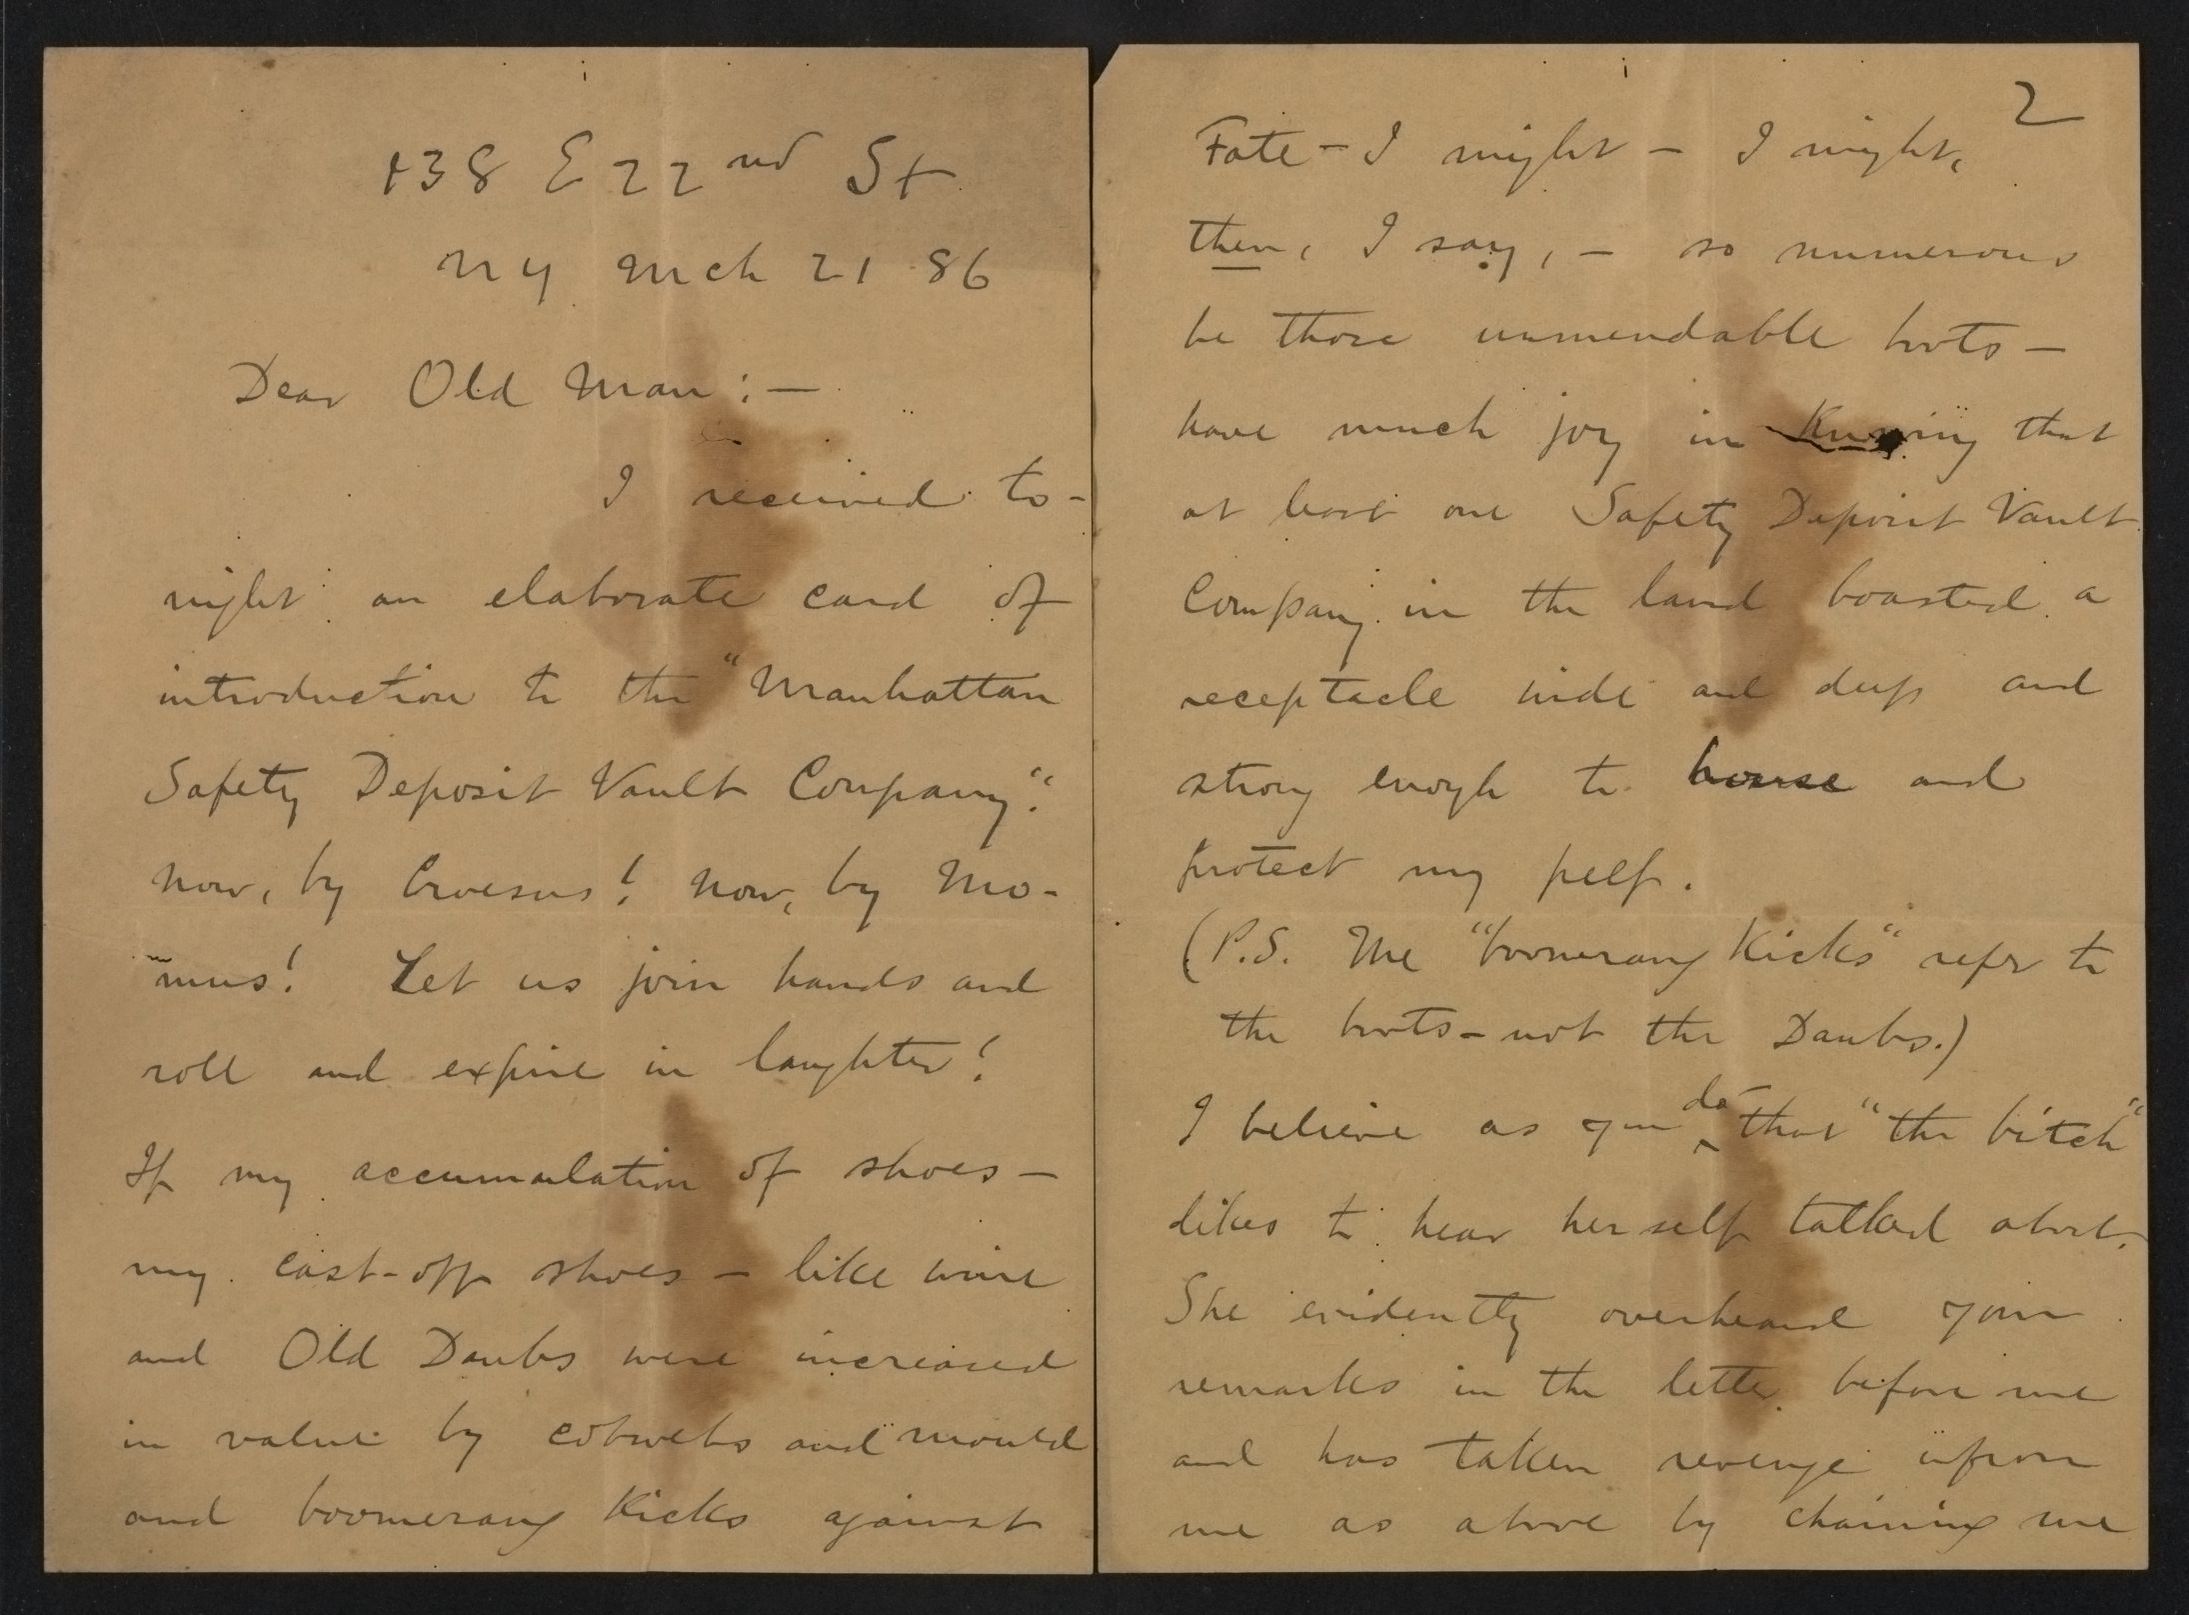 438 E 22nd St
NY Mch 21 86
Dear Old Man:—
I received to-
night an elaborate card of
introduction to the "Manhattan
Safety Deposit Vault Company".
Now, by Croesus! Now, by Mo-
mus! Let us join hands and
roll and expire in laughter!
If my accumulation of shoes —
my cast-off shoes — like wine
and Old Daubs were increased
in value by cobwebs and mould
and boomerang Kicks against
2
Fate — I might — I might,
then, I say, — so numerous
be those unmendable boots —
have much joy in Knowing that
at least one Safety Deposit Vault
Company in the land boasted a
receptacle wide and deep and
strong enough to house and
protect my pelf.
(P.S. The "boomerang Kicks" refer to
the boots — not the Daubs.)
I believe as you do that "the bitch"
likes to hear herself talked about.
She evidently overheard your
remarks in the letter before me
and has taken revenge upon
me as above by chaining me